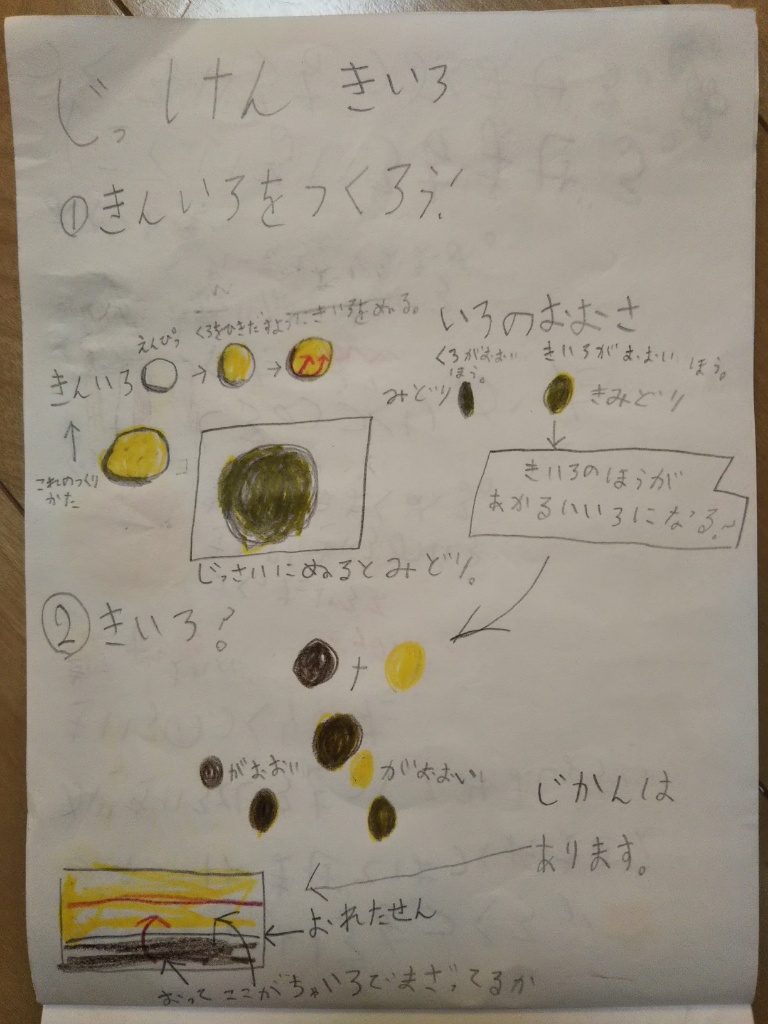 じっけん きいろ
①きんいろをつくろう!
えんぴつ
くろをひきだすようにきいろをぬる。
きんいろ → →
これのつくり
かた
じっさいにぬるとみどり。
いろのおおさ
くろがおおい
ほう。
みどり
きいろがおおい ほう。
きみどり
きいろのほうが
あかるいいろになる!~
②きいろ?
+
がおおい
がおおい
じかんは
あります。
おれたせん
おって ここがちゃいろでまざってるか